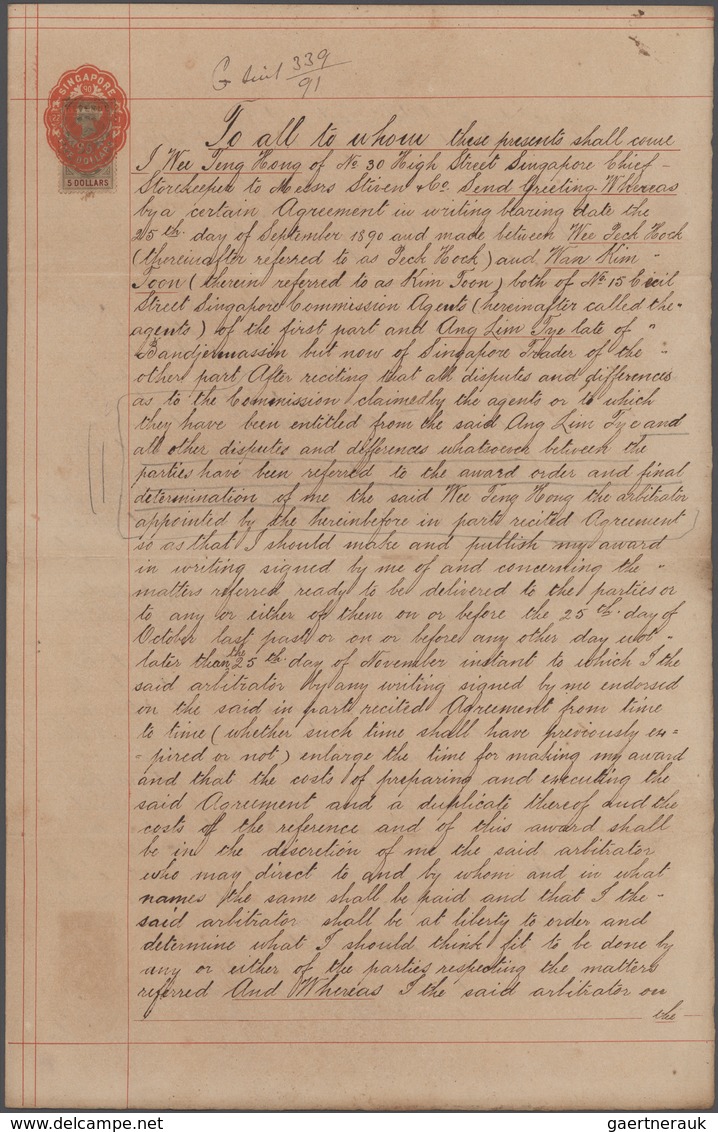 339
91
SINGAPORE
90
5 DOLLARS
To all to whom these presents shall come
I Wee Teng Hong of No. 30 High Street Singapore Chief-
Storekeeper to Messrs Stiven & Co. Send Greeting. Whereas
by a certain Agreement in writing bearing date the
25th. day of September 1890 and made between Wee Teck Hock
(thereinafter referred to as Teck Hock) and Wan Kim "
Toon (therein referred to as Kim Toon) both of No. 15 Cecil
Street Singapore Commission Agents (hereinafter called the "
agents) of the first part and Ang Lim Tye late of "
Bandjermassin but now of Singapore Trader of the "
other part After reciting that all disputes and differences
as to the Commission claimed by the agents or to which
they have been entitled from the said Ang Lim Tye and
all other disputes and differences whatsoever between the
parties have been referred to the award order and final
determination of me the said Wee Teng Hong the arbitrator
appointed by the hereinbefore in part recited Agreement
so as that I should make and publish my award
in writing signed by me of and concerning the "
matters referred ready to be delivered to the parties or
to any or either of them on or before the 25th. day of
October last past or on or before any other day not "
later than the 25th. day of November instant to which I the
said arbitrator by any writing signed by me endorsed
on the said in part recited Agreement from time
to time (whether such time shall have previously ex=
=pired or not) enlarge the time for making my award
and that the costs of preparing and executing the
said Agreement and a duplicate thereof and the
costs of the reference and of this award shall
be in the discretion of me the said arbitrator
who may direct to and by whom and in what
names the same shall be paid and that I the "
said arbitrator shall be at liberty to order and
determine what I should think fit to be done by
any or either of the parties respecting the matters
referred And Whereas I the said arbitrator on
the
gaertnerauk